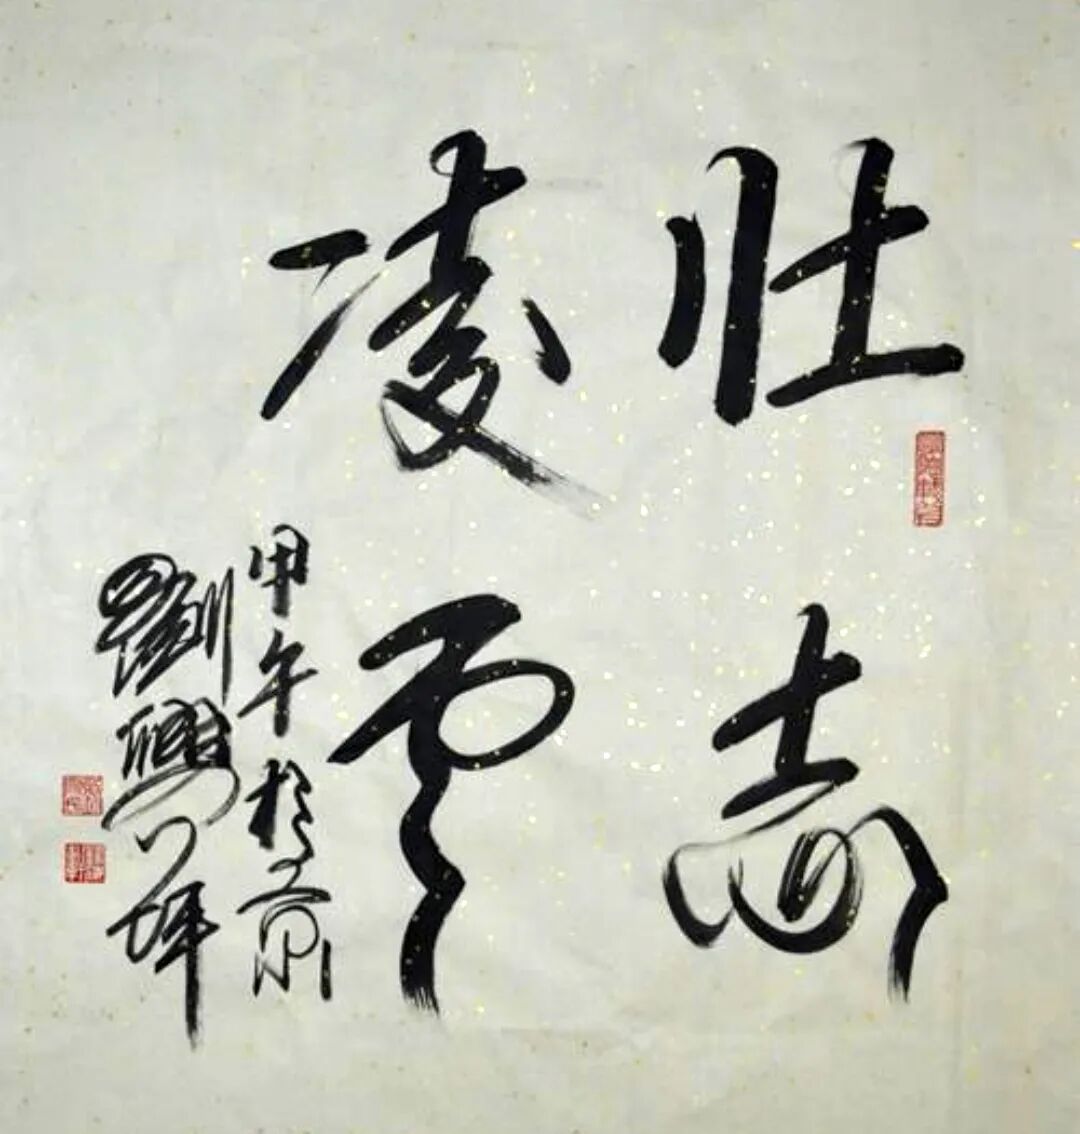 壮志
凌云
甲午於京
劉興坪